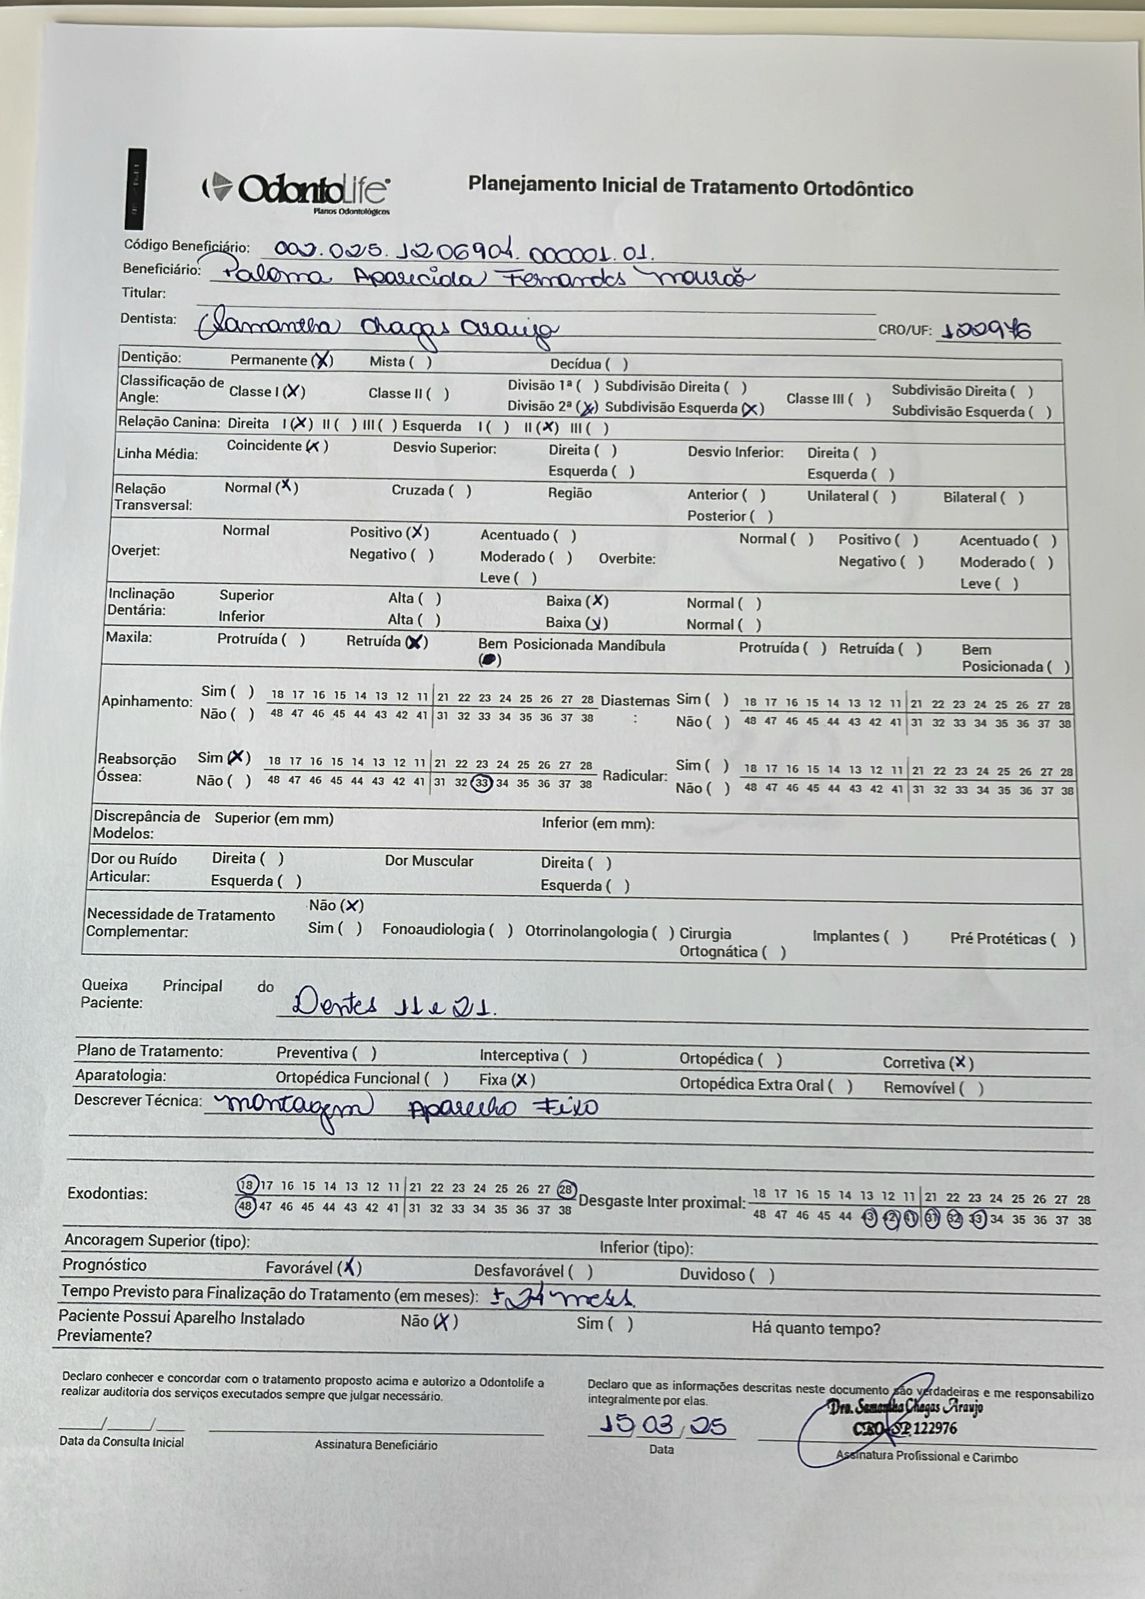 OdontoLife
Planos Odontológicos
Planejamento Inicial de Tratamento Ortodôntico
Código Beneficiário: 002.025.1206904.000001.01.
Beneficiário: Paloma Aparecida Fernandes Mourão
Titular:
Dentista: Samantha Chagas Araujo CRO/UF: 122976
Dentição: Permanente (X) Mista ( ) Decídua ( )
Classificação de Angle: Classe I (X) Classe II ( ) Divisão 1ª ( ) Subdivisão Direita ( ) Classe III ( ) Subdivisão Direita ( )
Divisão 2ª (X) Subdivisão Esquerda (X) Subdivisão Esquerda ( )
Relação Canina: Direita I (X) II ( ) III ( ) Esquerda I ( ) II (X) III ( )
Linha Média: Coincidente (X) Desvio Superior: Direita ( ) Desvio Inferior: Direita ( )
Esquerda ( ) Esquerda ( )
Relação Transversal: Normal (X) Cruzada ( ) Região Anterior ( ) Unilateral ( ) Bilateral ( )
Posterior ( )
Overjet: Normal Positivo (X) Acentuado ( ) Overbite: Normal ( ) Positivo ( ) Acentuado ( )
Negativo ( ) Moderado ( ) Negativo ( ) Moderado ( )
Leve ( ) Leve ( )
Inclinação Dentária: Superior Alta ( ) Baixa (X) Normal ( )
Inferior Alta ( ) Baixa (X) Normal ( )
Maxila: Protruída ( ) Retruída (X) Bem Posicionada ( ) Mandíbula Protruída ( ) Retruída ( ) Bem Posicionada ( )
Apinhamento: Sim ( ) 18 17 16 15 14 13 12 11 21 22 23 24 25 26 27 28 Diastemas: Sim ( ) 18 17 16 15 14 13 12 11 21 22 23 24 25 26 27 28
Não ( ) 48 47 46 45 44 43 42 41 31 32 33 34 35 36 37 38 Não ( ) 48 47 46 45 44 43 42 41 31 32 33 34 35 36 37 38
Reabsorção Óssea: Sim (X) 18 17 16 15 14 13 12 11 21 22 23 24 25 26 27 28 Radicular: Sim ( ) 18 17 16 15 14 13 12 11 21 22 23 24 25 26 27 28
Não ( ) 48 47 46 45 44 43 42 41 31 32 33 34 35 36 37 38 Não ( ) 48 47 46 45 44 43 42 41 31 32 33 34 35 36 37 38
Discrepância de Modelos: Superior (em mm) Inferior (em mm):
Dor ou Ruído Articular: Direita ( ) Dor Muscular Direita ( )
Esquerda ( ) Esquerda ( )
Necessidade de Tratamento Complementar: Não (X)
Sim ( ) Fonoaudiologia ( ) Otorrinolangologia ( ) Cirurgia Ortognática ( ) Implantes ( ) Pré Protéticas ( )
Queixa Principal do Paciente: Dentes 11 e 21.
Plano de Tratamento: Preventiva ( ) Interceptiva ( ) Ortopédica ( ) Corretiva (X)
Aparatologia: Ortopédica Funcional ( ) Fixa (X) Ortopédica Extra Oral ( ) Removível ( )
Descrever Técnica: Montagem Aparelho Fixo
Exodontias: 18 17 16 15 14 13 12 11 21 22 23 24 25 26 27 28 Desgaste Inter proximal: 18 17 16 15 14 13 12 11 21 22 23 24 25 26 27 28
48 47 46 45 44 43 42 41 31 32 33 34 35 36 37 38 48 47 46 45 44 43 42 41 31 32 33 34 35 36 37 38
Ancoragem Superior (tipo): Inferior (tipo):
Prognóstico Favorável (X) Desfavorável ( ) Duvidoso ( )
Tempo Previsto para Finalização do Tratamento (em meses): ± 24 meses.
Paciente Possui Aparelho Instalado Previamente? Não (X) Sim ( ) Há quanto tempo?
Declaro conhecer e concordar com o tratamento proposto acima e autorizo a Odontolife a
realizar auditoria dos serviços executados sempre que julgar necessário.
Declaro que as informações descritas neste documento são verdadeiras e me responsabilizo
integralmente por elas.
Dra. Samantha Chagas Araujo
CRO-SP 122976
__/__/__ 15/03/25
Data da Consulta Inicial Assinatura Beneficiário Data Assinatura Profissional e Carimbo